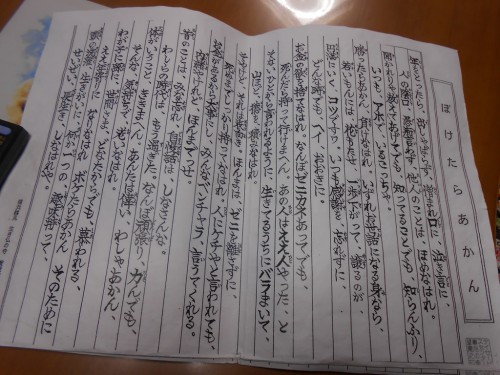 ぼけたらあかん
年をとったら、出しゃばらず、憎まれ口に、泣き言に、
人の陰口、愚痴言わず、他人のことは、ほめなはれ。
知ってることでも、知らんふり、
いつも、アホで、いるこっちゃ。
勝ったらあかん、負けなはれ、いづれお世話になる身なら、
若いもんには、花もたせ、一歩下がって、譲るのが、
円満にいく、コツですわ、いつも感謝を、忘れずに、
どんな時でも、ヘイ、おおきに。
お金の欲を、捨てなはれ、なんぼゼニカネあっても、
死んだら、持って行けまへん、あの人は、ええ人やった、と
そないに、人から、言われるように、生きてるうちに、バラまいて、
山ほど、徳を、積みなはれ。
それは表向き、ほんまは、ゼニを離さずに、
死ぬまでしっかり、持ってなはれ、人に、ケチやと言われても、
お金があるから、大事にし、みんな、ベンチャラ、言うてくれる。
内緒やけれど、ほんまだっせ。
昔のことは、みな忘れ、自慢話は、しなさんな、
わしらの時代は、もう過ぎた、なんぼ頑張り、力んでも、
体がいうこと、ききまへん、あんたは偉い、わしゃあかん、
そんな気持ちで、老いなはれ。
わが子に孫に、世間さま、どなたからでも、慕われる、
なりなはれ、ボケたらあかん、そのために
頭の洗濯、生きがいに、何か一つの、趣味持って、
せいぜい、長生き、しなはれや。